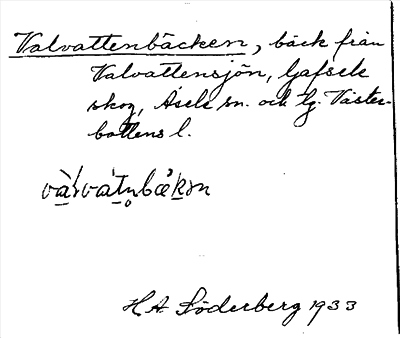 Valvattenbäcken, bäck från
Valvattensjön, Gafsele
skog, Åsele sn. och lg. Väster-
bottens l.
H.A. Söderberg 1933